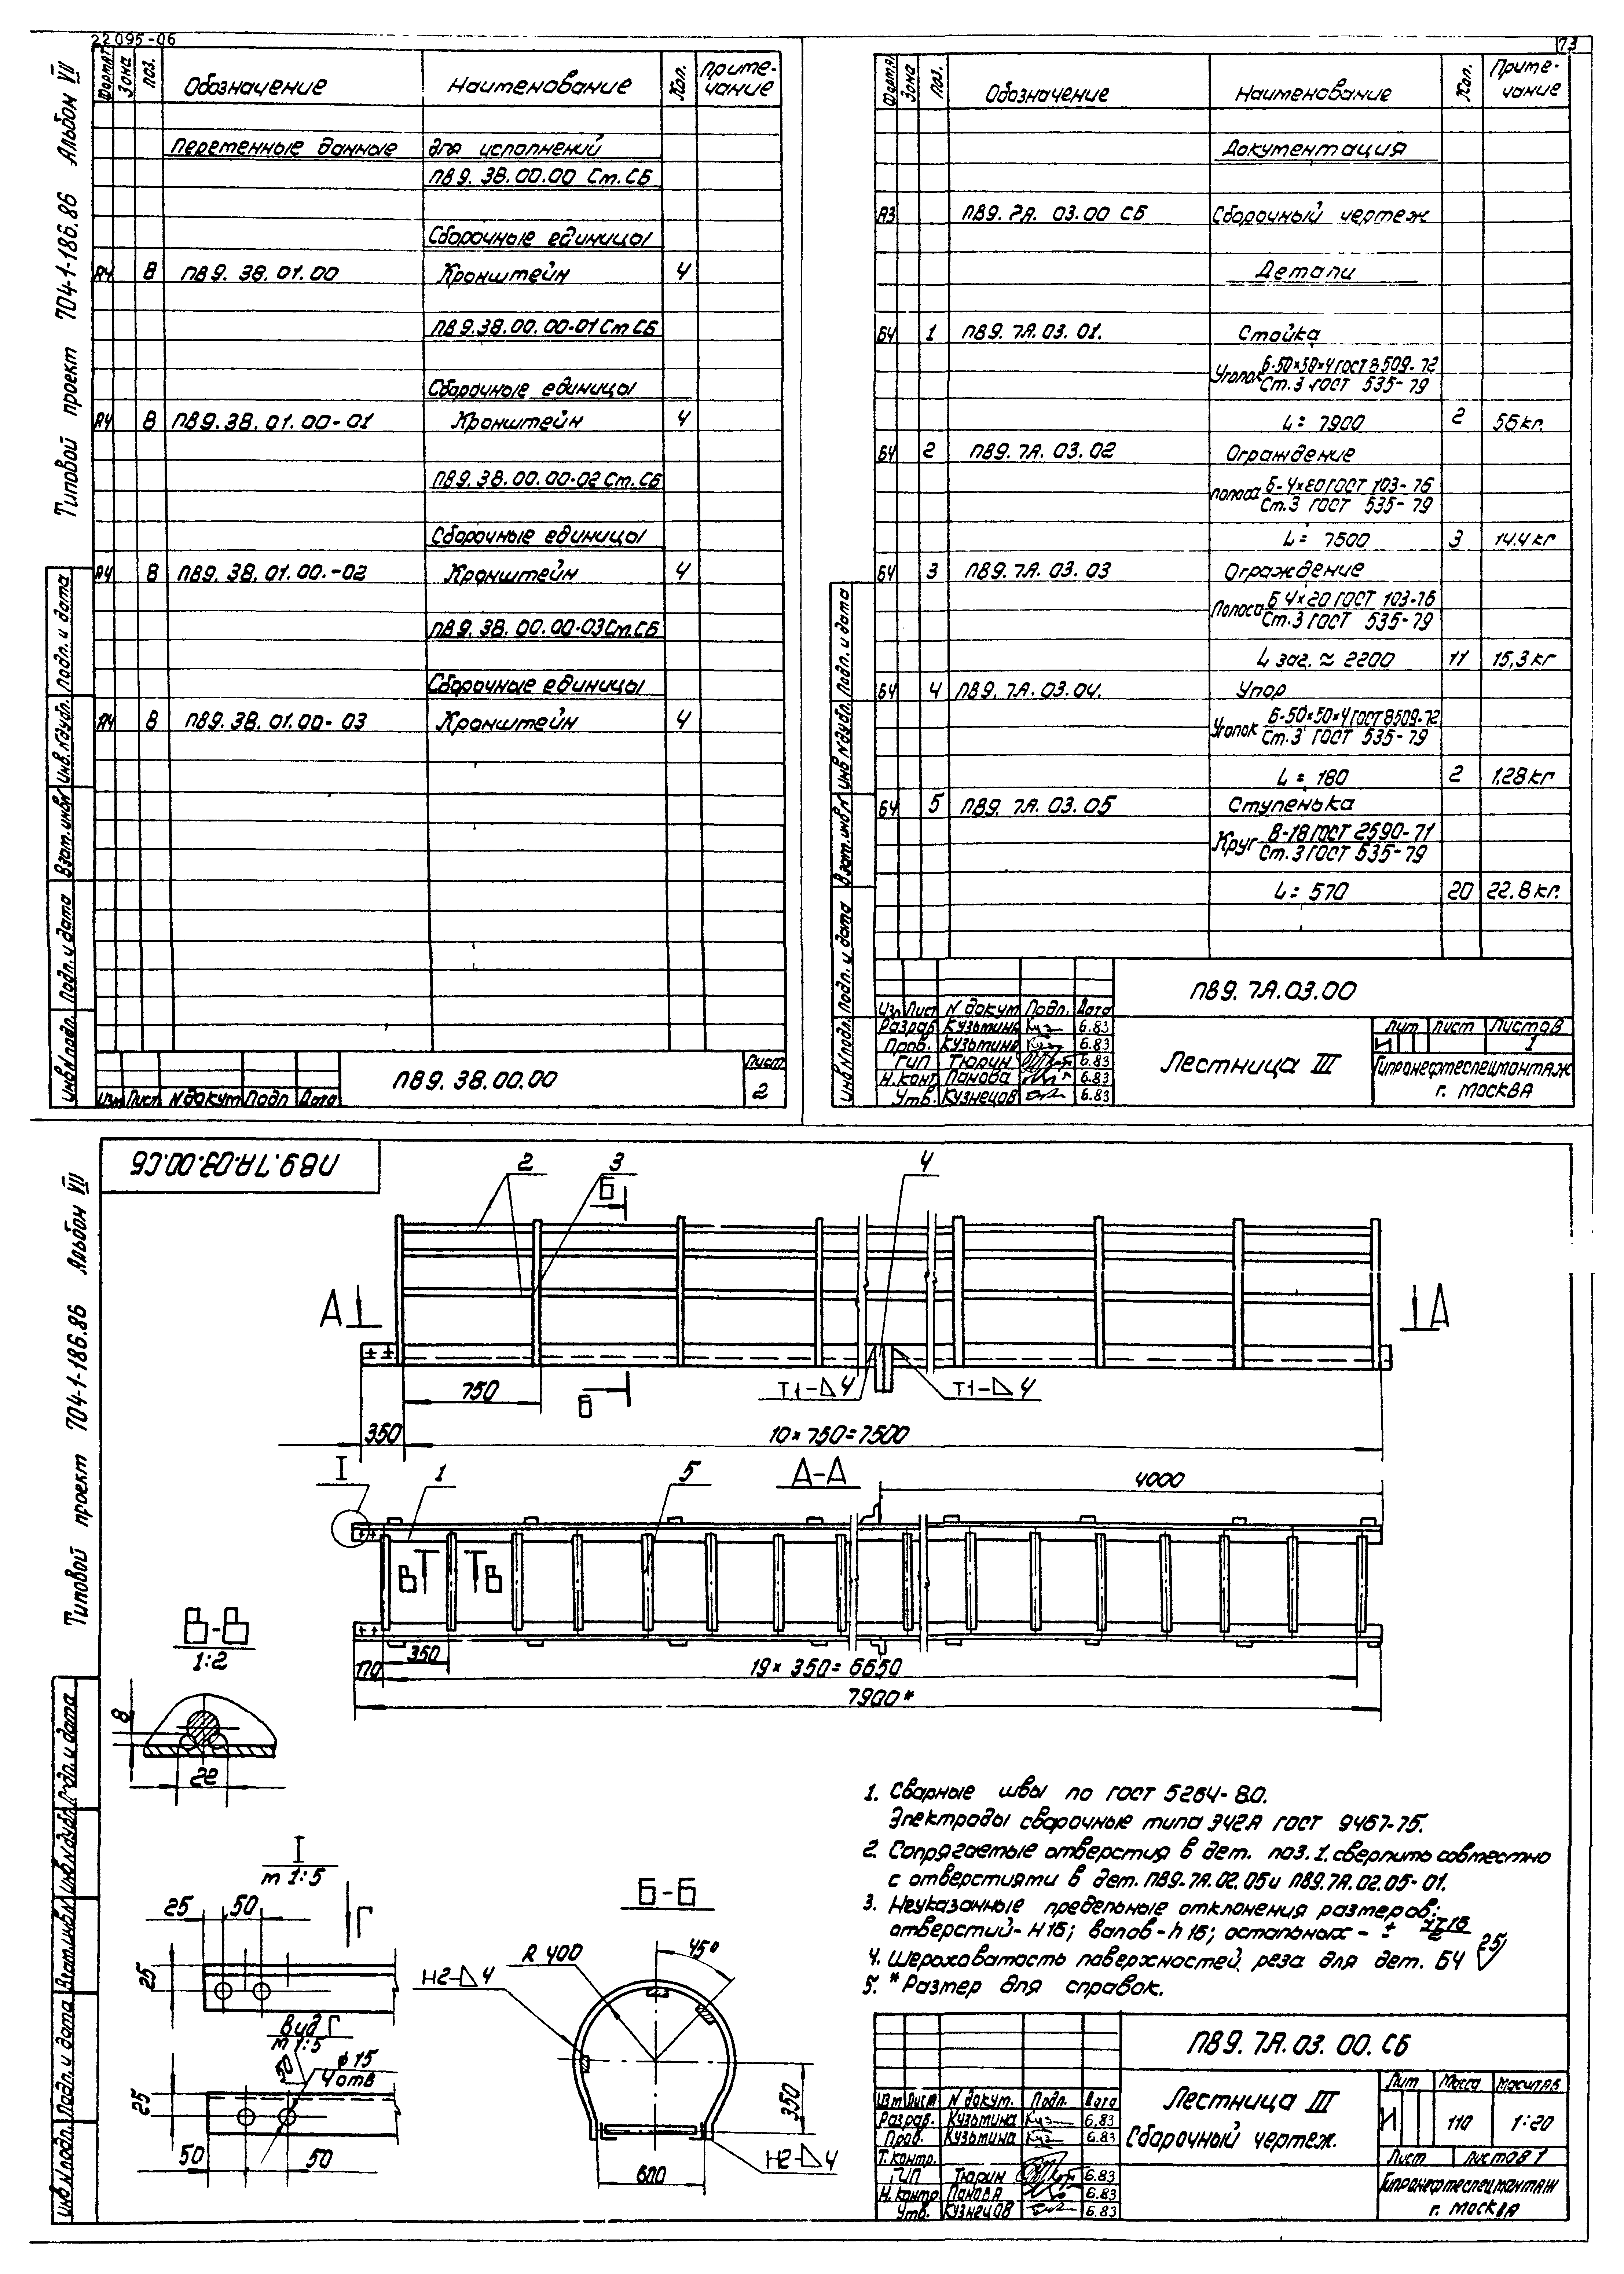 22095-06
73
Типовой проект 704-1-186.86 Альбом VII
Формат Зона Поз. Обозначение Наименование Кол. Примечание
Переменные данные для исполнений
П89.38.00.00 Ст.СБ
Сборочные единицы
А4 8 П89.38.01.00 Кронштейн 4
П89.38.00.00-01 Ст.СБ
Сборочные единицы
А4 8 П89.38.01.00-01 Кронштейн 4
П89.38.00.00-02 Ст.СБ
Сборочные единицы
А4 8 П89.38.01.00.-02 Кронштейн 4
П89.38.00.00-03 Ст.СБ
Сборочные единицы
А4 8 П89.38.01.00-03 Кронштейн 4
Инв.N подл. Подп. и дата Взам.инв.N Инв.N дубл. Подп. и дата
Изм Лист N докум Подп Дата
П89.38.00.00
Лист
2
Формат Зона Поз. Обозначение Наименование Кол. Примечание
Документация
А3 П89.7А.03.00 СБ Сборочный чертеж
Детали
БЧ 1 П89.7А.03.01. Стойка
Уголок Б-50×50×4 ГОСТ 8509-72
Ст.3 ГОСТ 535-79
L= 7900 2 56кг.
БЧ 2 П89.7А.03.02 Ограждение
Полоса Б-4×20 ГОСТ 103-76
Ст.3 ГОСТ 535-79
L= 7500 3 14.4кг
БЧ 3 П89.7А.03.03 Ограждение
Полоса Б 4×20 ГОСТ 103-76
Ст.3 ГОСТ 535-79
L заг. ≈ 2200 11 15,3кг
БЧ 4 П89.7А.03.04. Упор
Уголок Б-50×50×4 ГОСТ 8509-72
Ст.3 ГОСТ 535-79
L= 180 2 1.28кг
БЧ 5 П89.7А.03.05 Ступенька
Круг В-18 ГОСТ 2590-71
Ст.3 ГОСТ 535-79
L= 570 20 22.8кг.
Инв.N подл. Подп. и дата Взам.инв.N Инв.N дубл. Подп. и дата
П89.7А.03.00
Изм Лист N докум Подп. Дата
Разраб. Кузьмина 6.83
Пров. Кузьмина 6.83
ГИП Тюрин 6.83
Н.конт. Панова 6.83
Утв. Кузнецов 6.83
Лестница III
Лит Лист Листов
И 1
Гипронефтеспецмонтаж
г. Москва
Типовой проект 704-1-186.86 Альбом VII
П89.7А.03.00.СБ
2 3 4
Б
А А
750
Б
Т1-△4 Т1-△4
350 10×750=7500
I 1 5 А-А 4000
В В
170 350 19×350=6650
7900*
В-В
1:2
8
22
I
М 1:5
25 50 Г
25
Вид Г
М 1:5
20 φ15
4 отв
25
50 50
Б-Б
R 400 45°
Н2-△4
350
Н2-△4
600
1. Сварные швы по ГОСТ 5264-80.
Электроды сварочные типа Э42А ГОСТ 9467-75.
2. Сопрягаемые отверстия в дет. поз.1. сверлить совместно
с отверстиями в дет. П89.7А.02.05 и П89.7А.02.05-01.
3. Неуказанные предельные отклонения размеров:
отверстий-Н16; валов-h16; остальных- ± IT16/2
4. Шероховатость поверхностей реза для дет. БЧ 25
5. * Размер для справок.
Инв.N подл. Подп. и дата Взам.инв.N Инв.N дубл. Подп. и дата
П89.7А.03.00.СБ
Изм Лист N докум. Подп. Дата
Разраб. Кузьмина 6.83
Пров. Кузьмина 6.83
Т.контр.
ГИП Тюрин 6.83
Н.контр Панова 6.83
Утв. Кузнецов 6.83
Лестница III
Сборочный чертеж.
Лит Масса Масштаб
И 110 1:20
Лист Листов 1
Гипронефтеспецмонтаж
г. Москва